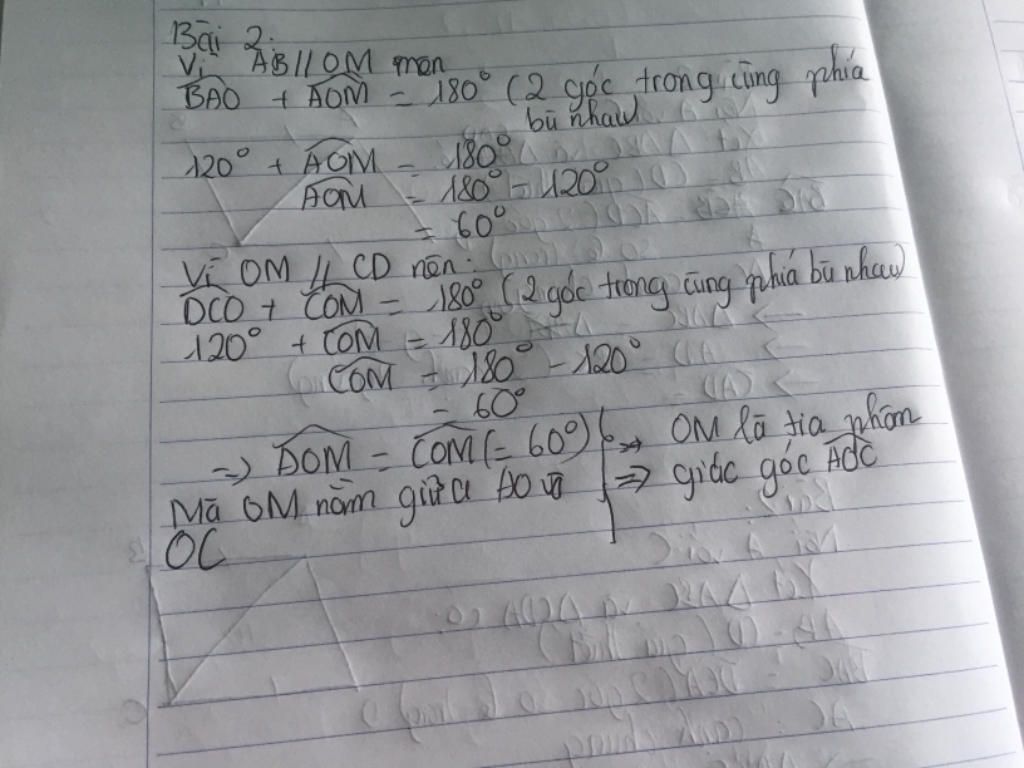 Bài 2:
Vì AB // OM nên
BAO + AOM = 180° (2 góc trong cùng phía
bù nhau)
120° + AOM = 180°
AOM = 180° - 120°
= 60°
Vì OM // CD nên:
DCO + COM = 180° (2 góc trong cùng phía bù nhau)
120° + COM = 180°
COM = 180° - 120°
= 60°
=> AOM = COM (= 60°) } => OM là tia phân
Mà OM nằm giữa AO và } => giác góc AOC
OC